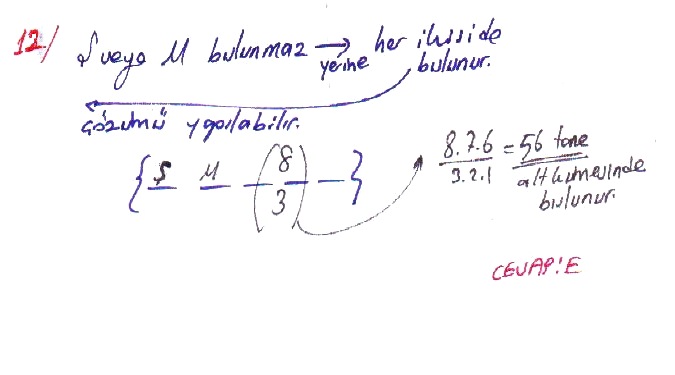 12/ Ş veya M bulunmaz → yerine her ikiside bulunur.
çözümü yapılabilir.
{ Ş M (8 3) }
8.7.6 / 3.2.1 = 56 tane
altkümesinde
bulunur.
CEVAP: E